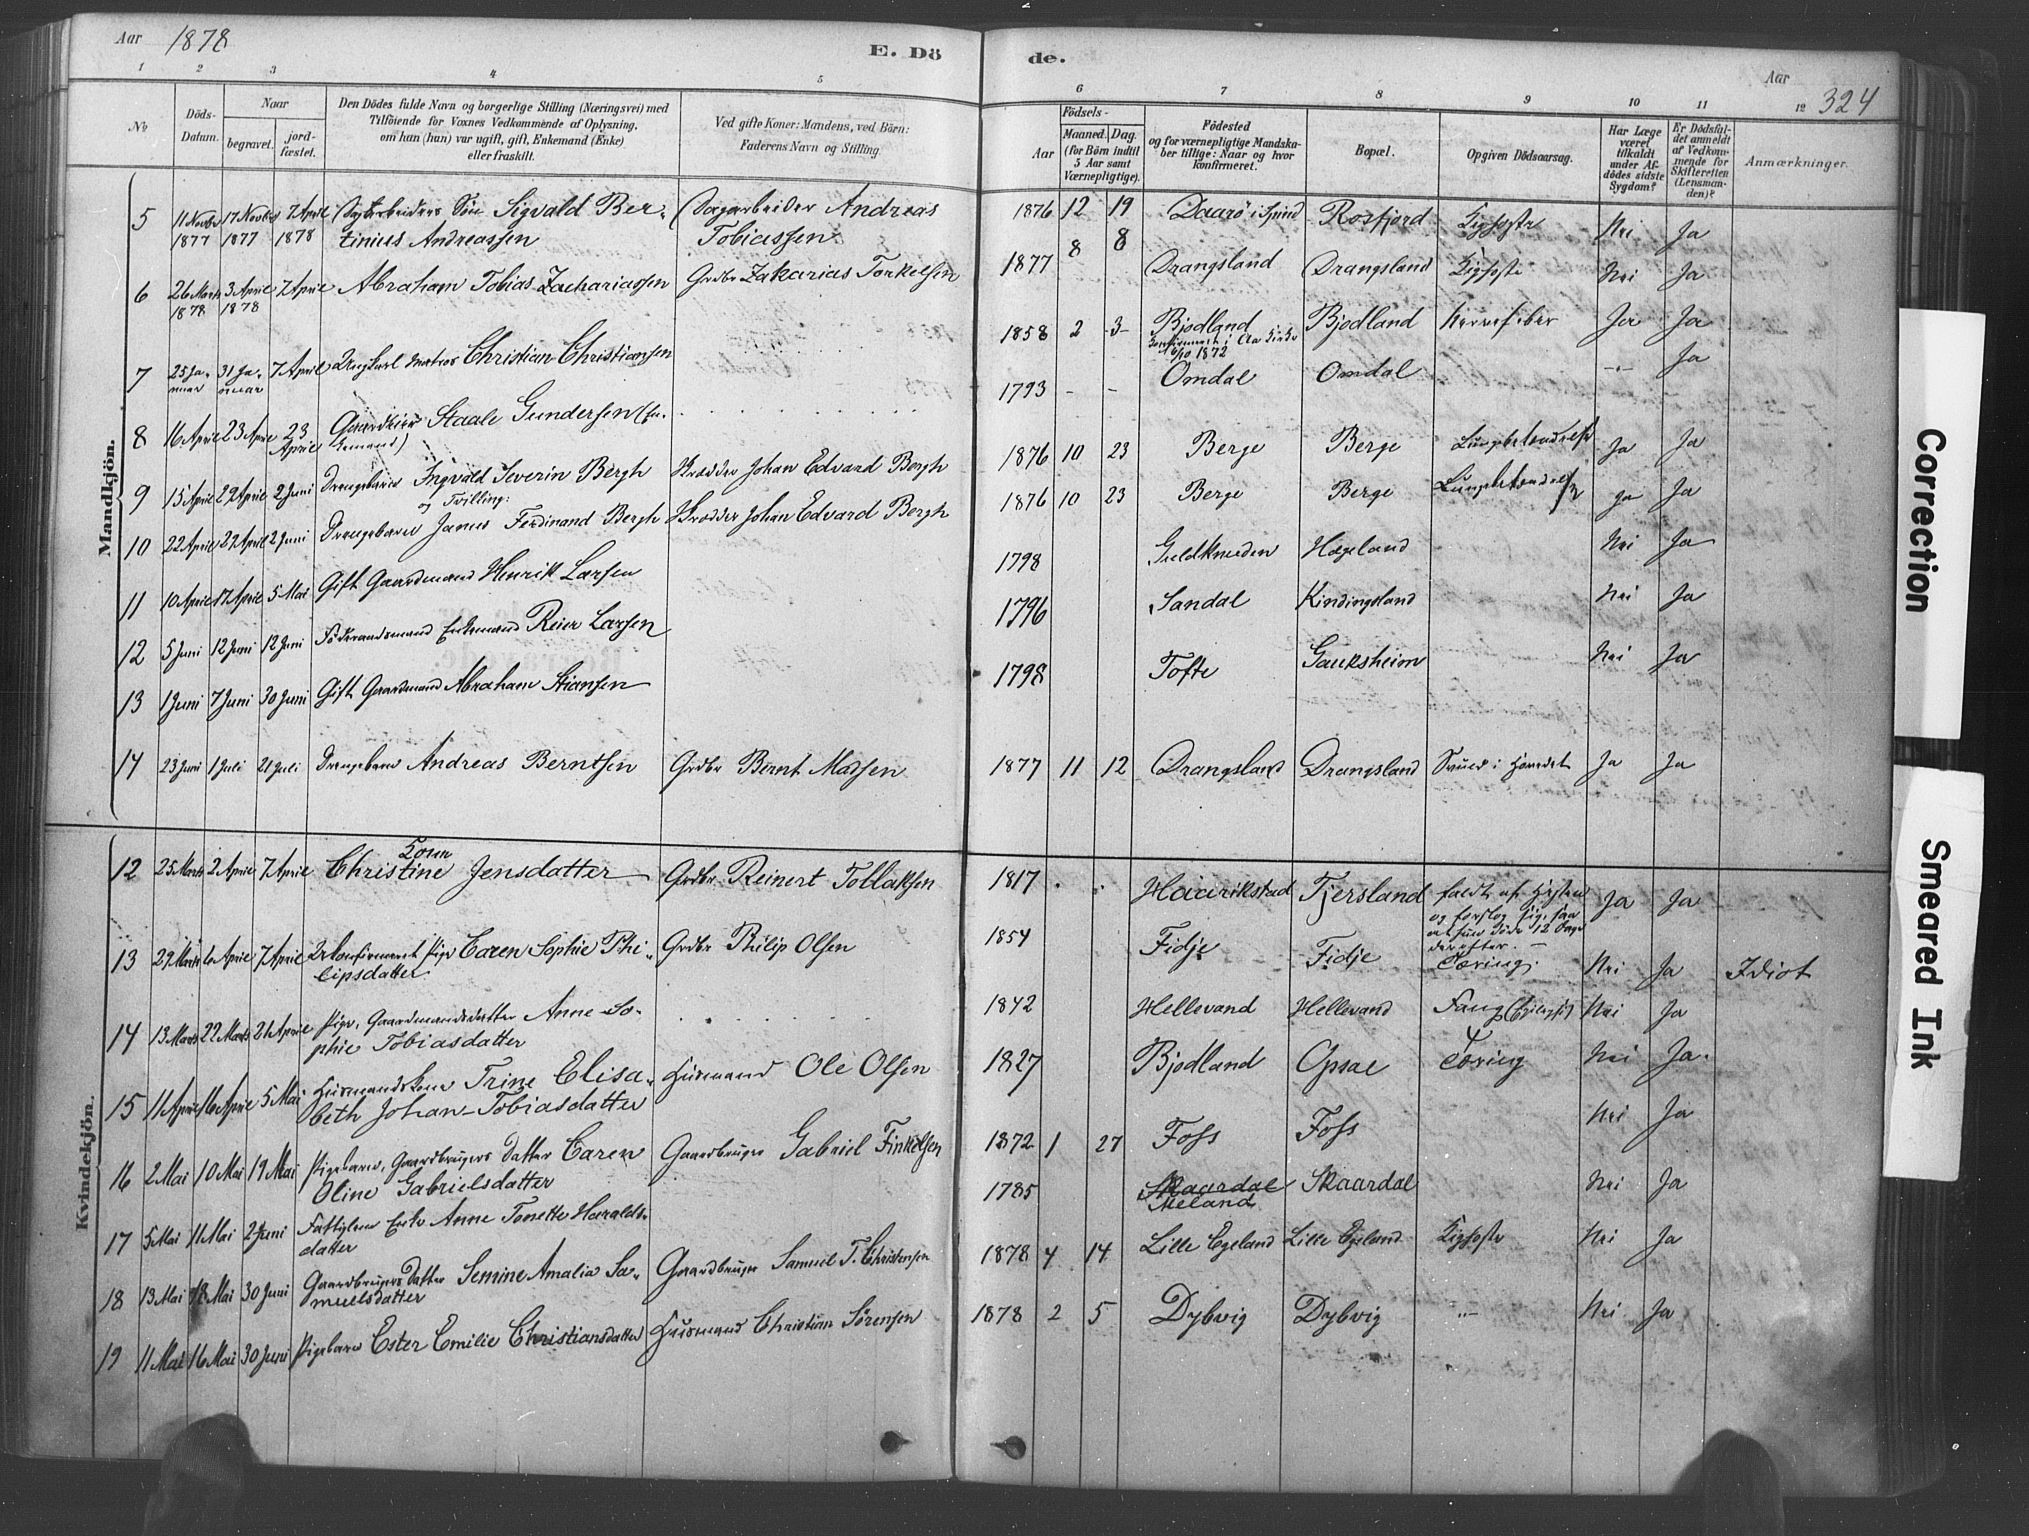 Aar 1878
E. Dö
de.
Aar
324
1 2 3 4 5 6 7 8 9 10 11 12
No
Döds-
Datum.
Naar
begravet.
jord-
fæstet.
Den Dödes fulde Navn og borgerlige Stilling (Næringsvei) med
Tilföiende for Voxnes Vedkommende af Oplysning,
om han (hun) var ugift, gift, Enkemand (Enke)
eller fraskilt.
Ved gifte Koner: Mandens, ved Börn:
Faderens Navn og Stilling.
Aar
Födsels-
Maaned. Dag.
(for Börn indtil
5 Aar samt
Værnepligtige).
Födested
og for værnepligtige Mandska-
ber tillige: Naar og hvor
konfirmeret.
Bopæl.
Opgiven Dödsaarsag.
Har Læge
været
tilkaldt
under Af-
dödes sidste
Sygdom?
Er Dödsfal-
det anmeldt
af Vedkom-
mende for
Skifteretten
(Lensman-
den)?
Anmærkninger.
Mandkjön.
5 11 Novbr 17 Novbr 7 April Sagarbeiders Sön Sigvald Ber- Sagarbeider Andreas 1876 12 19 Daarö i Spind Rosfjord Kighoste Nei Ja
1877 1877 1878 tinius Andreassen Tobiassen
6 26 Marts 3 April 7 April Abraham Tobias Zachariassen Grdbr Zakarias Torkelsen 1877 8 8 Drangsland Drangsland Kighoste Nei Ja
1878 1878
7 25 Ja- 31 Ja- 7 April Ungkarl Matros Christian Christiansen 1858 2 3 Bjodland Bjodland Nervefeber Ja Ja
nuar nuar 1872
8 16 April 23 April 23 April Gaardeier Staale Gundersen (En- 1793 - - Omdal Omdal Ja
kemand)
9 15 April 22 April 2 Juni Drengebarn Ingvald Severin Bergh Skrædder Johan Edvard Bergh 1876 10 23 Berge Berge Lungebetændelse Ja Ja
og Tvilling:
10 22 April 29 April 2 Juni Drengebarn Janus Ferdinand Bergh Skrædder Johan Edvard Bergh 1876 10 23 Berge Berge Lungebetændelse Ja Ja
11 10 April 17 April 5 Mai Gift Gaardmand Henrik Larsen 1798 Guldknuden Hægeland Nei Ja
12 5 Juni 12 Juni 12 Juni Föderaadsmand Enkemand Reier Larsen 1796 Sandal Kindingsland Nei Ja
13 1 Juni 7 Juni 30 Juni Gift Gaardmand Abraham Stiansen 1798 Tofte Gauksheim Nei Ja
14 23 Juni 1 Juli 21 Juli Drengebarn Andreas Berntsen Grdbr Bernt Madsen 1877 11 12 Drangsland Drangsland Ja Ja
Kvindekjön.
12 25 Marts 2 April 7 April Kone Christine Jensdatter Grdbr Reinert Tollaksen 1817 Haarikstad Tjersland faldt af Hesten Ja Ja
og forslog sig, saa
at hun döde 12 Dage
derefter.
13 29 Marts 6 April 7 April Ukonfirmeret Pige Caren Sophie Phi- Grdbr Philip Olsen 1854 Fidje Fidje Tæring Nei Ja Idiot
lipsdatter
14 13 Marts 22 Marts 21 April Pige, Gaardmandsdatter Anne So- 1842 Hellevand Hellevand Nei Ja
phie Tobiasdatter
15 11 April 16 April 5 Mai Husmandskone Trine Elisa- Husmand Ole Olsen 1827 Bjodland Opsal Tæring Nei Ja
beth Johan-Tobiasdatter
16 2 Mai 10 Mai 19 Mai Pigebarn, Gaardbrugers Datter Caren Gaardbruger Gabriel Finkelsen 1872 1 27 Foss Foss Nei Ja
Oline Gabrielsdatter
17 5 Mai 11 Mai 2 Juni Fattiglem Enke Anne Tonette Haralds- 1785 Skaardal Skaardal Nei Ja
datter
18 13 Mai 18 Mai 30 Juni Gaardbrugers Datter Semine Amalia Sa- Gaardbruger Samuel T. Christensen 1878 4 14 Lille Egeland Lille Egeland Kighoste Nei Ja
muelsdatter
19 11 Mai 16 Mai 30 Juni Pigebarn Ester Emilie Christiansdatter Husmand Christian Sörensen 1878 2 5 Dybvig Dybvig -"- Nei Ja
Correction
Smeared Ink